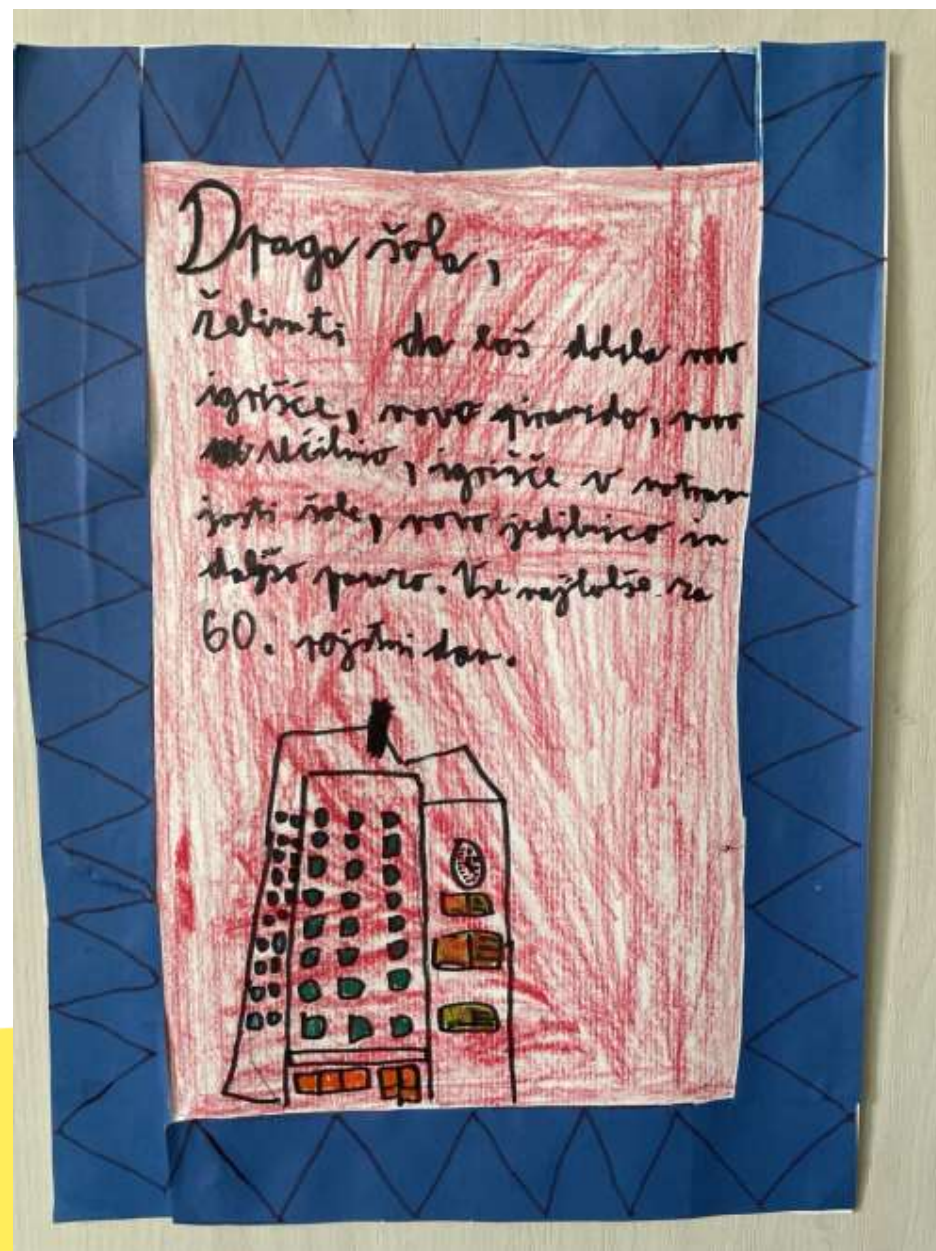 Draga šola,
želim ti da boš dobila novo
igrišče, novo, novo
učilnico, igrišče v notran
josti šole, novo jedilnico in
daljšo pavzo. Vse najbolše za
60. rojstni dan.